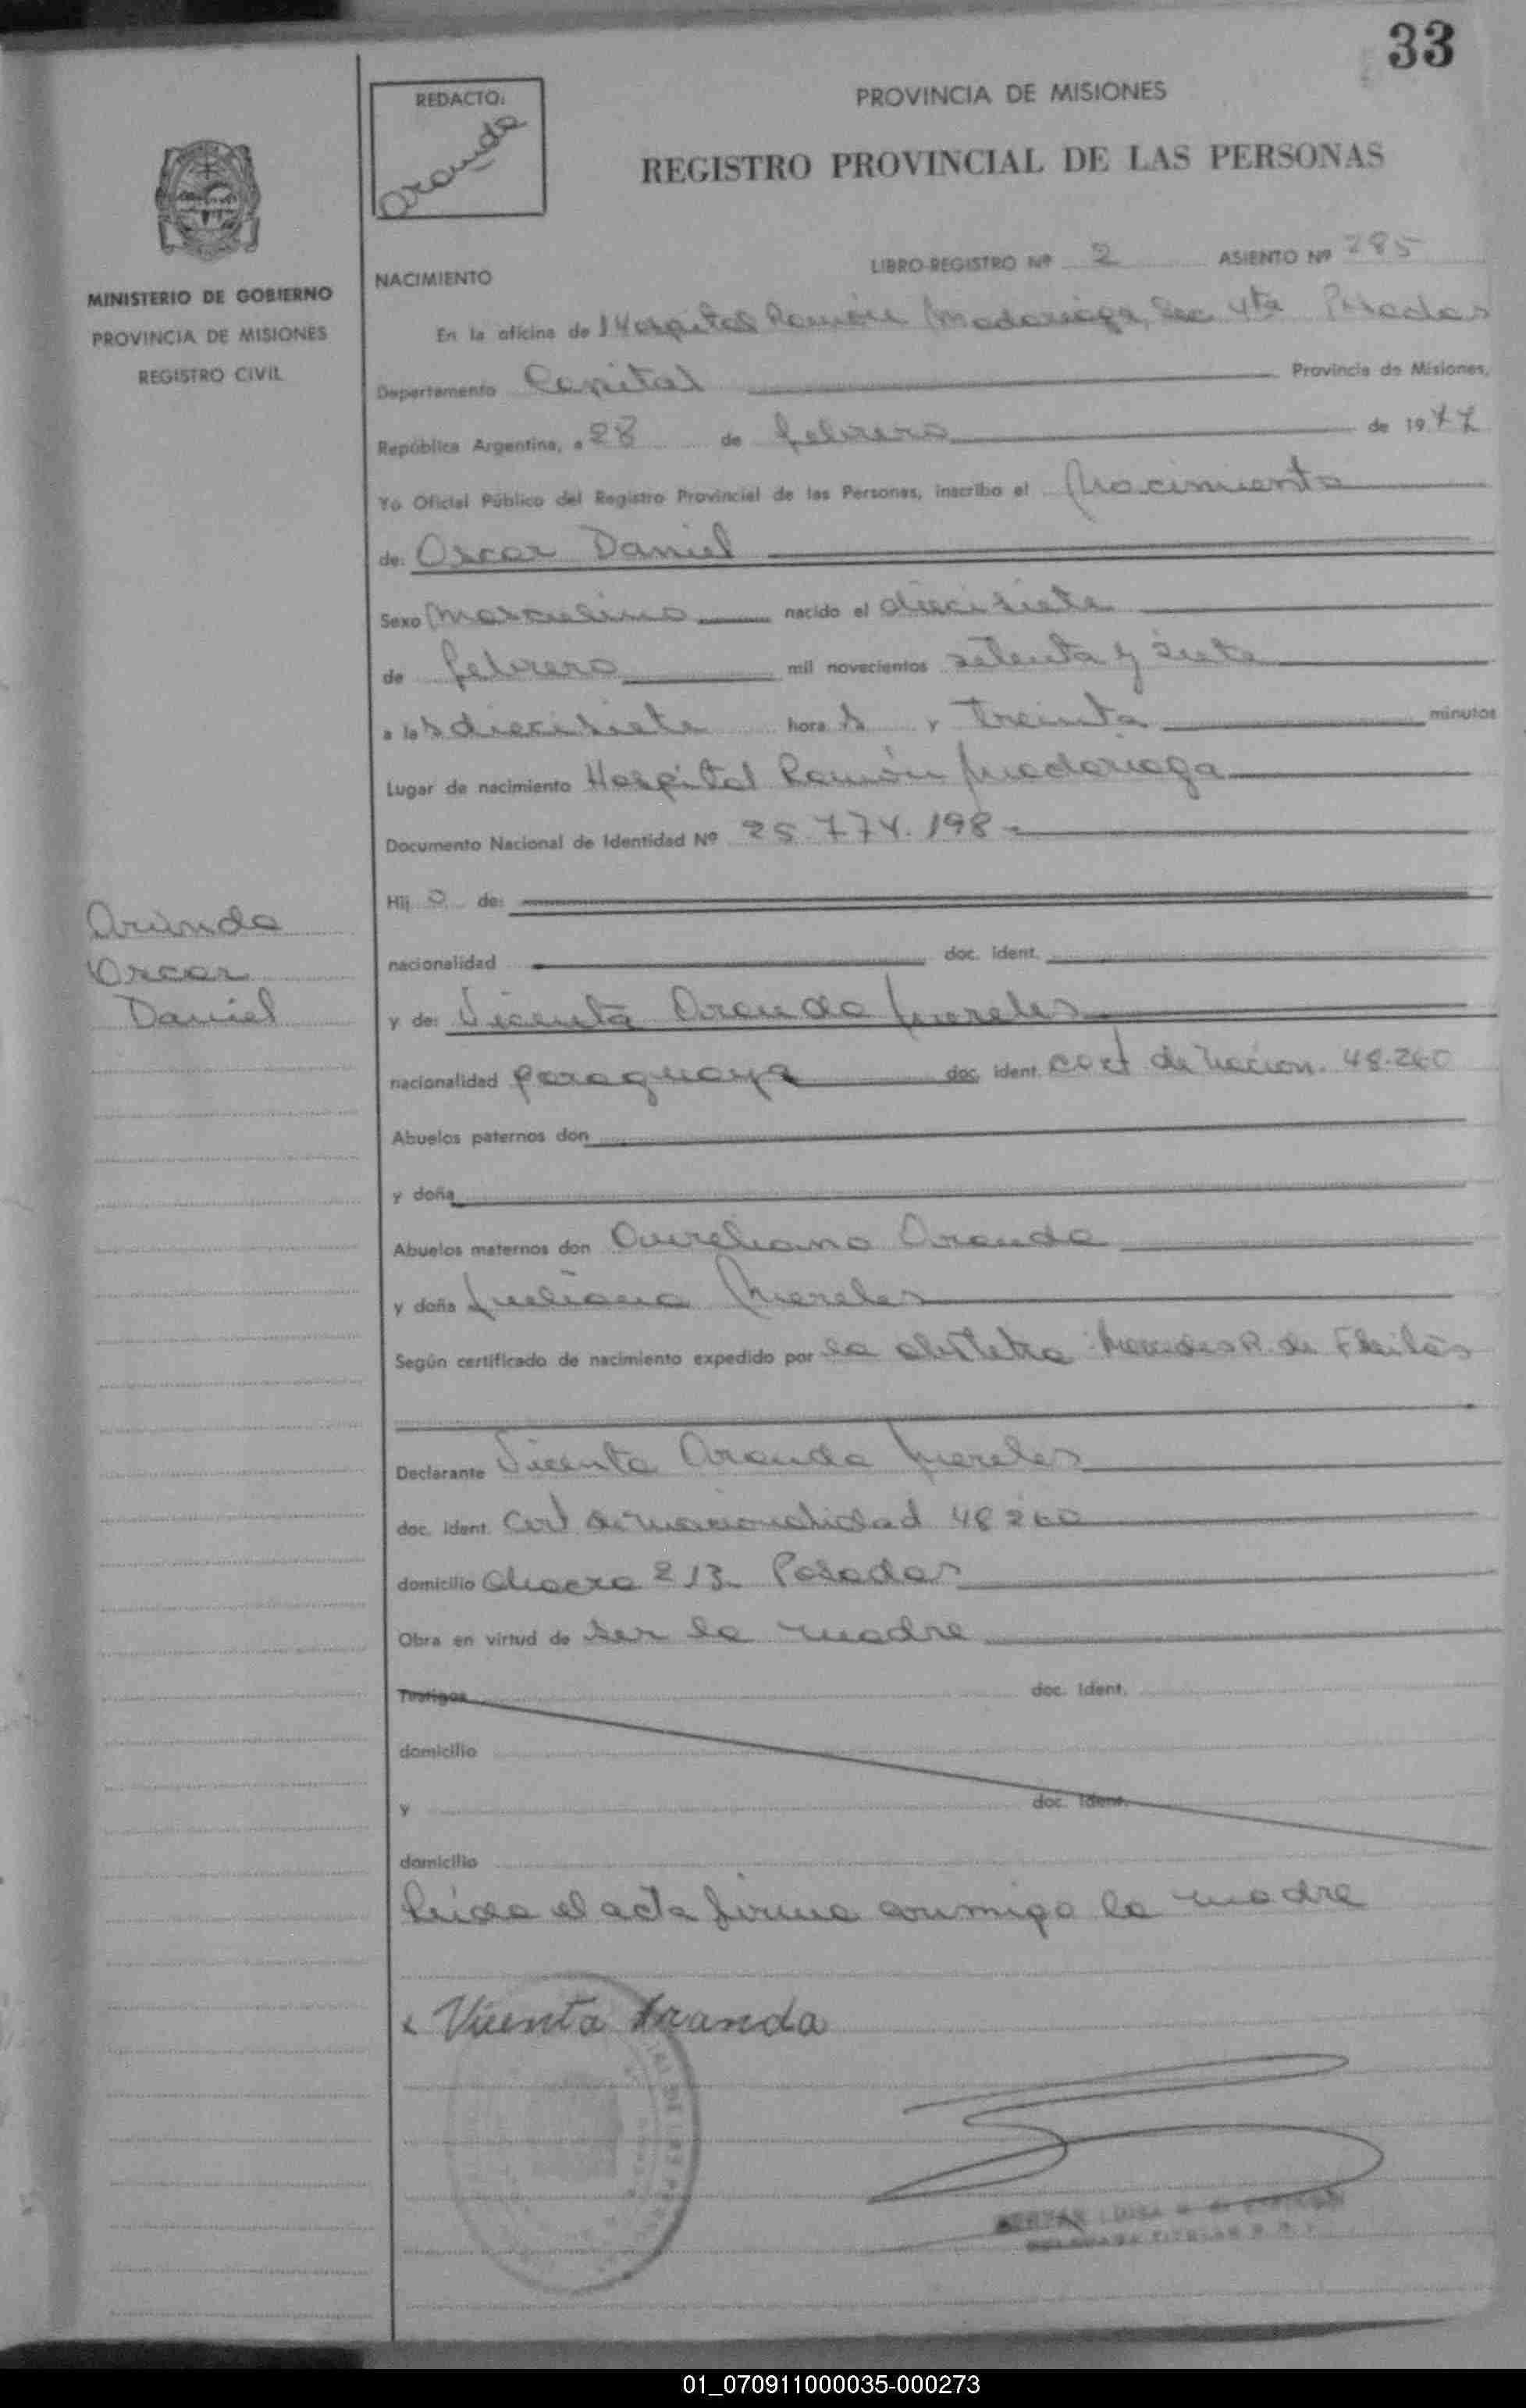 33
REDACTO:
Aranda
PROVINCIA DE MISIONES
REGISTRO PROVINCIAL DE LAS PERSONAS
MINISTERIO DE GOBIERNO
PROVINCIA DE MISIONES
REGISTRO CIVIL
NACIMIENTO
LIBRO-REGISTRO Nº 2 ASIENTO Nº 285
En la oficina de Hospital Ramón Madariaga, Sec 4ta Posadas
Departamento Capital Provincia de Misiones,
República Argentina, a 28 de febrero de 1977
Yo Oficial Público del Registro Provincial de las Personas, inscribo el Nacimiento
de: Oscar Daniel
Sexo Masculino nacido el diecisiete
de febrero mil novecientos setenta y siete
a las diecisiete horas y treinta minutos
Lugar de nacimiento Hospital Ramón Madariaga
Documento Nacional de Identidad Nº 25.774.198-
Hijo de:
nacionalidad doc. ident.
y de: Vicenta Aranda Mereles
nacionalidad paraguaya doc. ident. cert de nacion. 48.260
Abuelos paternos don
y doña
Abuelos maternos don Aureliano Aranda
y doña Juliana Mereles
Según certificado de nacimiento expedido por la obstetra Mercedes R. de
Declarante Vicenta Aranda Mereles
doc. ident. Cert de nacionalidad 48260
domicilio Chacra 213 Posadas
Obra en virtud de ser la madre
Testigos doc. ident.
domicilio
y doc. ident.
domicilio
Leída el acta firma conmigo la madre
x Vicenta Aranda
Aranda
Oscar
Daniel
01_070911000035-000273